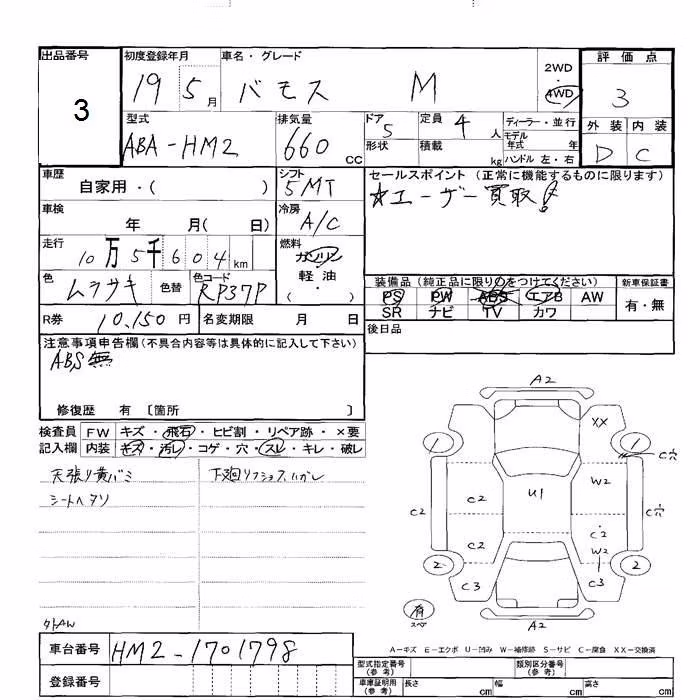 出品番号 初度登録年月 車名・グレード 2WD 評価点
3 19 5月 バモス M 4WD 3
型式 排気量 ドア 5 定員 4人 ディーラー・並行 外装 内装
ABA-HM2 660cc 形状 積載 kg モデル年式 年 D C
ハンドル 左・右
車歴 シフト セールスポイント(正常に機能するものに限ります)
自家用・( ) 5MT ☆ユーザー買取!
車検 冷房
年 月( 日) A/C
走行 燃料
10万5千604km ガソリン
軽・油
・
( )
色 ムラサキ 色替 色コード RP37P 装備品(純正品に限り○をつけてください) 新車保証書
PS PW ABS エアB AW 有・無
SR ナビ TV カワ
R券 10,150円 名変期限 月 日 後日品
注意事項申告欄(不具合内容等は具体的に記入して下さい)
ABS無
修復歴 有 〔箇所 〕
検査員記入欄 FW キズ・飛石・ヒビ割・リペア跡・×要
内装 キズ・汚レ・コゲ・穴・スレ・キレ・破レ
天張り黄バミ 下廻リフショク、ハガレ
シートヘタリ
外AW
A2
XX
1 1
C穴
W2
C2 C2 U1 C穴
C2
C2 W2
2 2
C3 C3
有
スペ A2
A-キズ E-エクボ U-凹み W-補修跡 S-サビ C-腐食 XX-交換済
車台番号 HM2-1701798
登録番号
型式指定番号(参考) 類別区分番号(参考)
車庫証明用(参考) 長さ cm 幅 cm 高さ cm